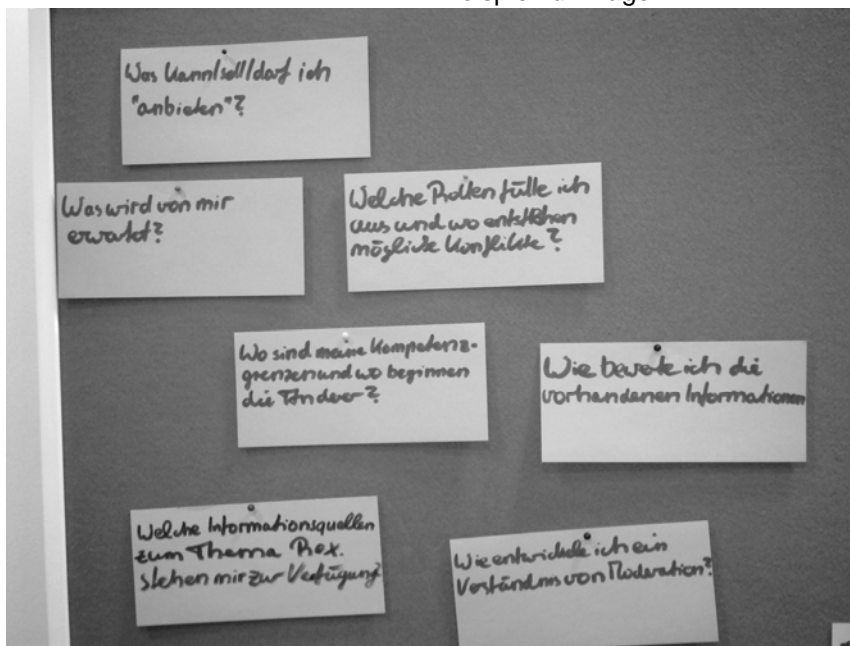 Was kann/soll/darf ich
"anbieten"?
Was wird von mir
erwartet?
Welche Rollen fülle ich
aus und wo entstehen
mögliche Konflikte?
Wo sind meine Kompetenz-
grenzen und wo beginnen
die Anderer?
Wie bewerte ich die
vorhandenen Informationen
Welche Informationsquellen
zum Thema Rex.
stehen mir zur Verfügung?
Wie entwickele ich ein
Verständnis von Moderation?